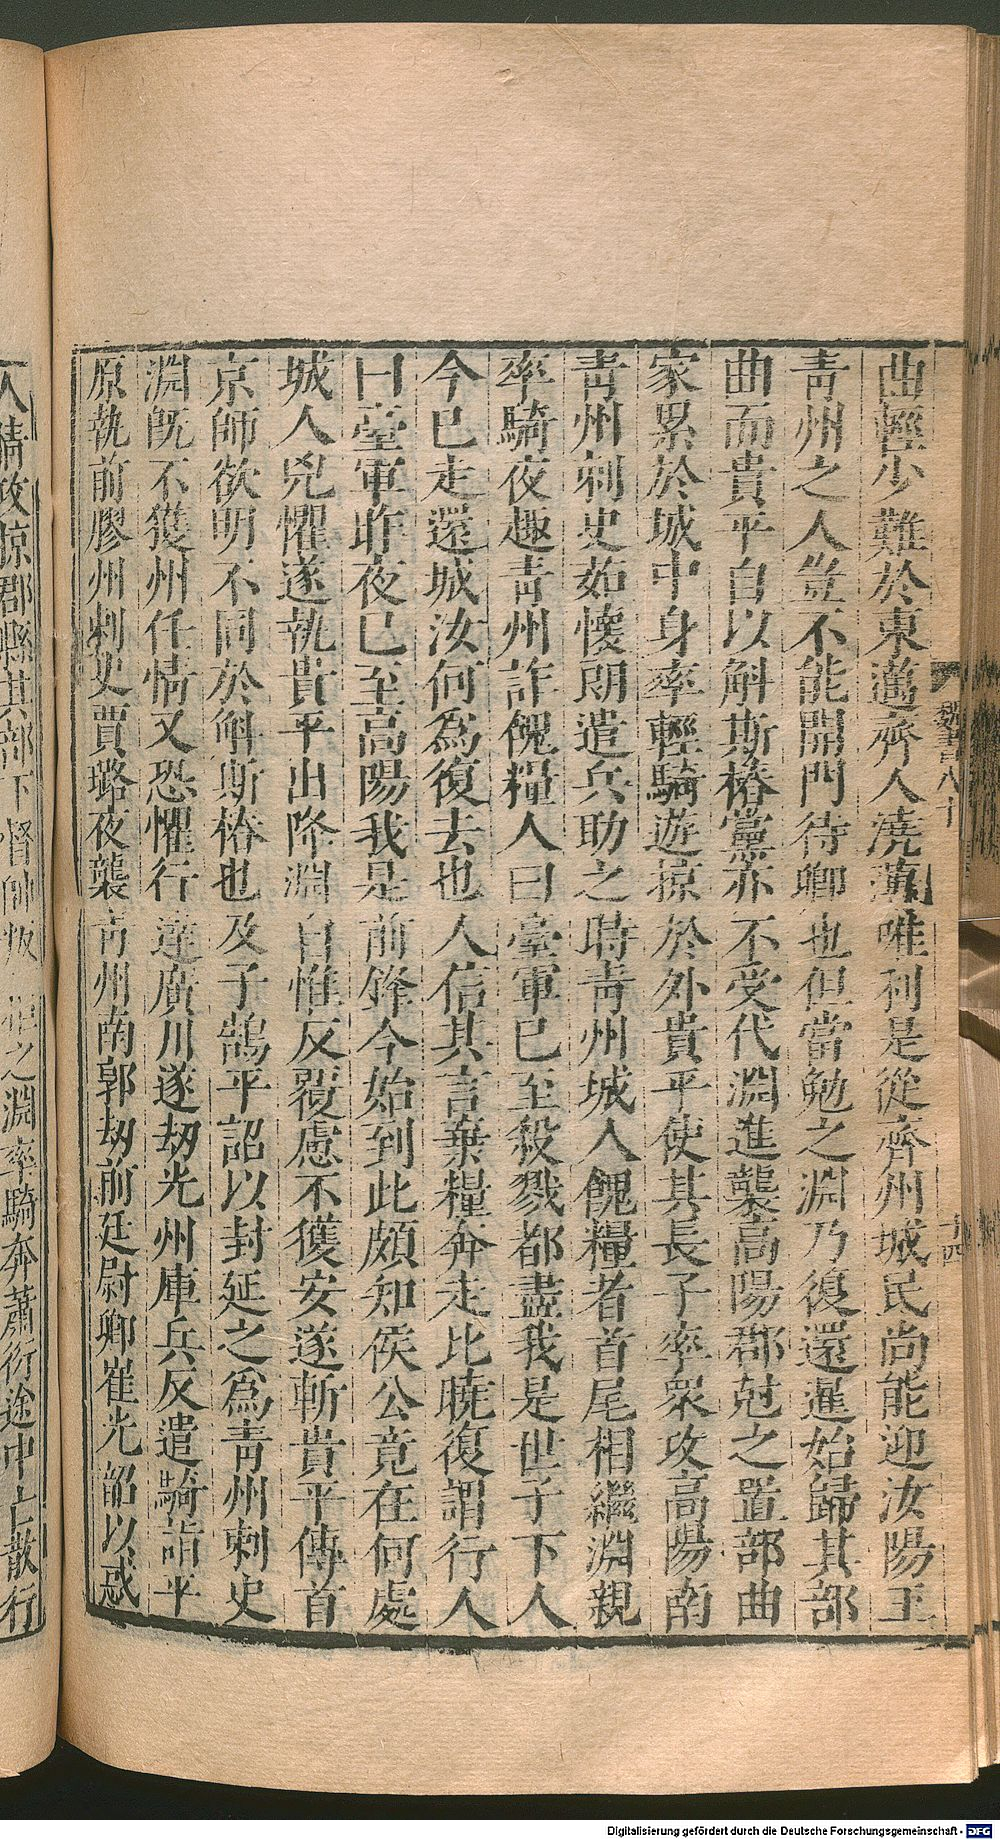 曲輕少難於東邁齊人澆薄唯利是從齊州城民尚能迎汝陽王
青州之人豈不能開門待卿也但當勉之淵乃復還暹始歸其部
曲而貴平自以斛斯椿黨亦不受代淵進襲高陽郡尅之置部曲
家累於城中身率輕騎遊掠於外貴平使其長子率衆攻高陽南
青州刺史茹懷朗遣兵助之時青州城人餽糧者首尾相繼淵親
率騎夜趣青州詐餽糧人曰臺軍已至殺戮都盡我是世子下人
今已走還城汝何爲復去也人信其言棄糧奔走比曉復謂行人
曰臺軍昨夜已至高陽我是前鋒今始到此頗知侯公竟在何處
城人兇懼遂執貴平出降淵自惟反覆慮不獲安遂斬貴平傳首
京師欲明不同於斛斯椿也及子鵠平詔以封延之爲青州刺史
淵旣不獲州任情又恐懼行達廣川遂刼光州庫兵反遣騎詣平
原執前膠州刺史賈璐夜襲青州南郭刼前廷尉卿崔光韶以惑
人情攻掠郡縣其部下督帥叛拒之淵率騎奔蕭衍途中亡散行
魏書八十
十四
Digitalisierung gefördert durch die Deutsche Forschungsgemeinschaft - DFG